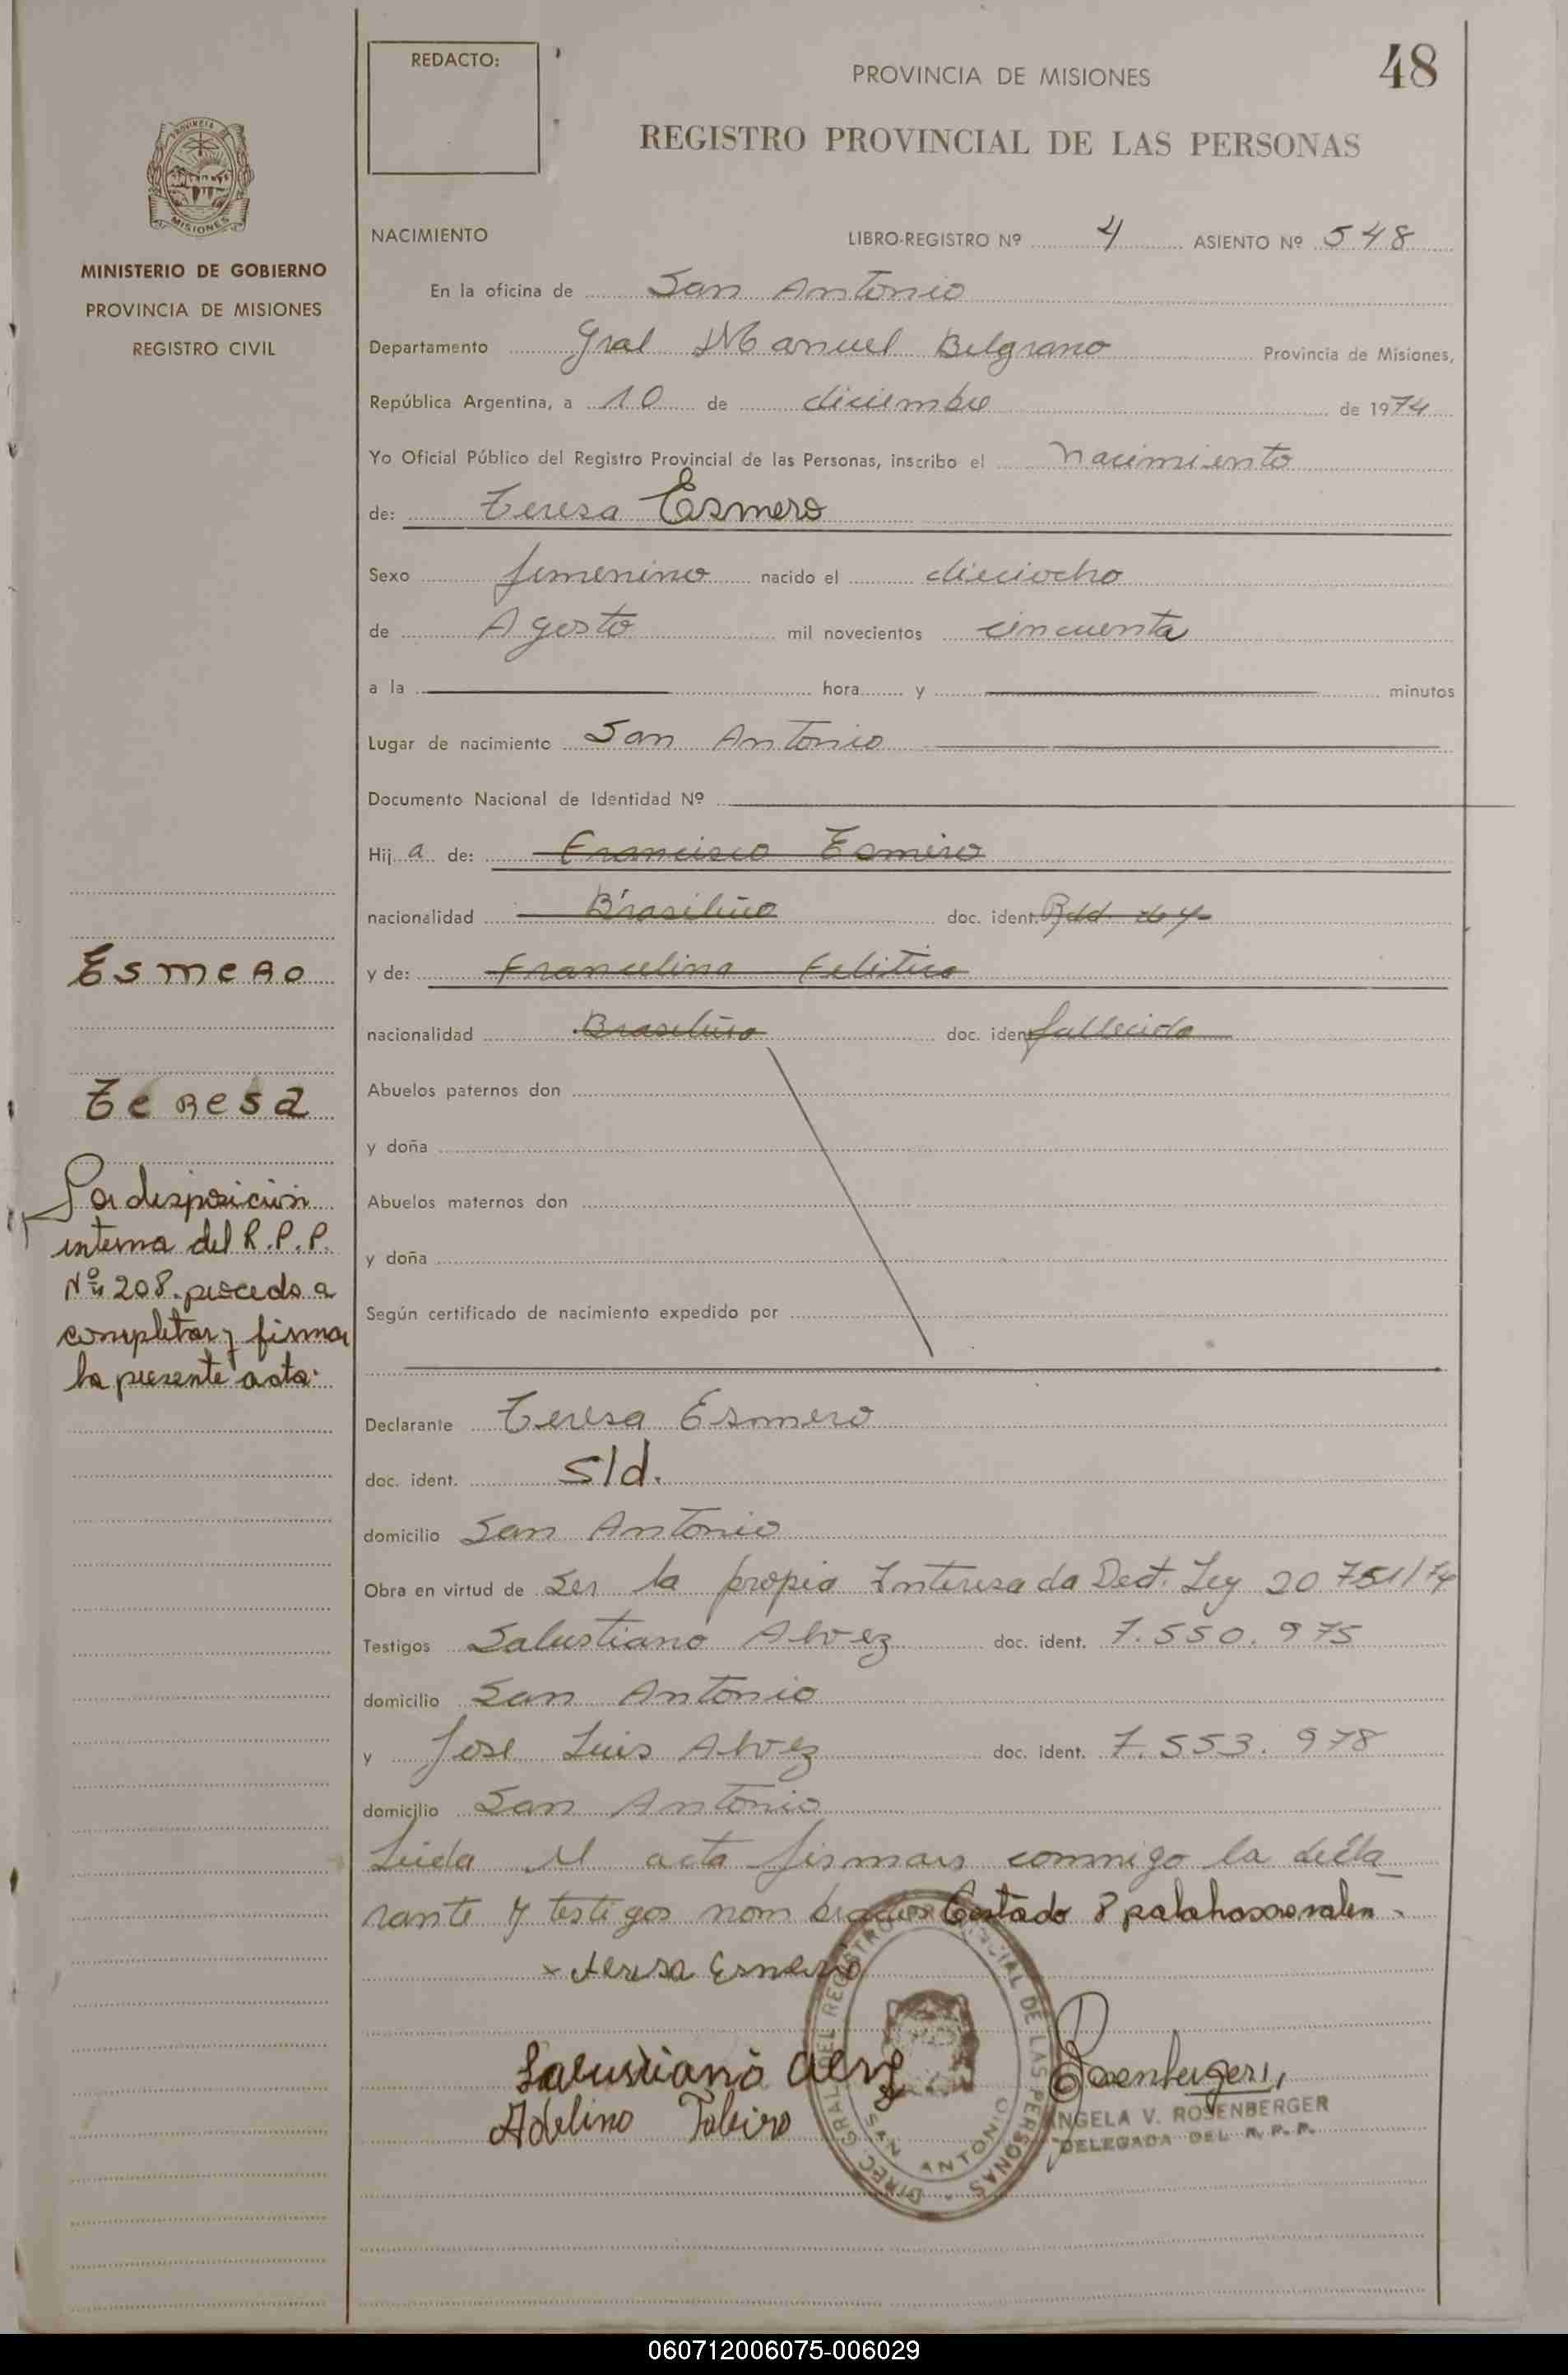 REDACTO:
PROVINCIA DE MISIONES
48
REGISTRO PROVINCIAL DE LAS PERSONAS
PROVINCIA DE
MISIONES
MINISTERIO DE GOBIERNO
PROVINCIA DE MISIONES
REGISTRO CIVIL
NACIMIENTO
LIBRO-REGISTRO Nº 4 ASIENTO Nº 548
En la oficina de San Antonio
Departamento Gral Manuel Belgrano Provincia de Misiones,
República Argentina, a 10 de diciembre de 1974
Yo Oficial Público del Registro Provincial de las Personas, inscribo el nacimiento
de: Teresa Esmero
Sexo femenino nacido el dieciocho
de Agosto mil novecientos cincuenta
a la hora y minutos
Lugar de nacimiento San Antonio
Documento Nacional de Identidad Nº
Hij a de: Francisco Esmero
nacionalidad Brasileño doc. ident.
y de: Francelina
nacionalidad doc. ident fallecida
Abuelos paternos don
y doña
Abuelos maternos don
y doña
Según certificado de nacimiento expedido por
Esmero
Teresa
Por disposición
interna del R.P.P.
Nº 208. procedo a
completar y firmar
la presente acta.
Declarante Teresa Esmero
doc. ident. S/d.
domicilio San Antonio
Obra en virtud de Ser la propia Interesada Dect. Ley 20 751/74
Testigos Salustiano Alvez doc. ident. 7.550.975
domicilio San Antonio
y Jose Luis Alvez doc. ident. 7.553.978
domicilio San Antonio
Leida el acta firman conmigo la decla
rante y testigos nombrados Testado 8 palabras no valen.
x teresa Esmerio
Salustiano Alvez
Adelino
Rosenberger
ANGELA V. ROSENBERGER
DELEGADA DEL R. P. P.
DIREC. GRAL. DEL REGISTRO PROVINCIAL DE LAS PERSONAS
SAN ANTONIO
060712006075-006029